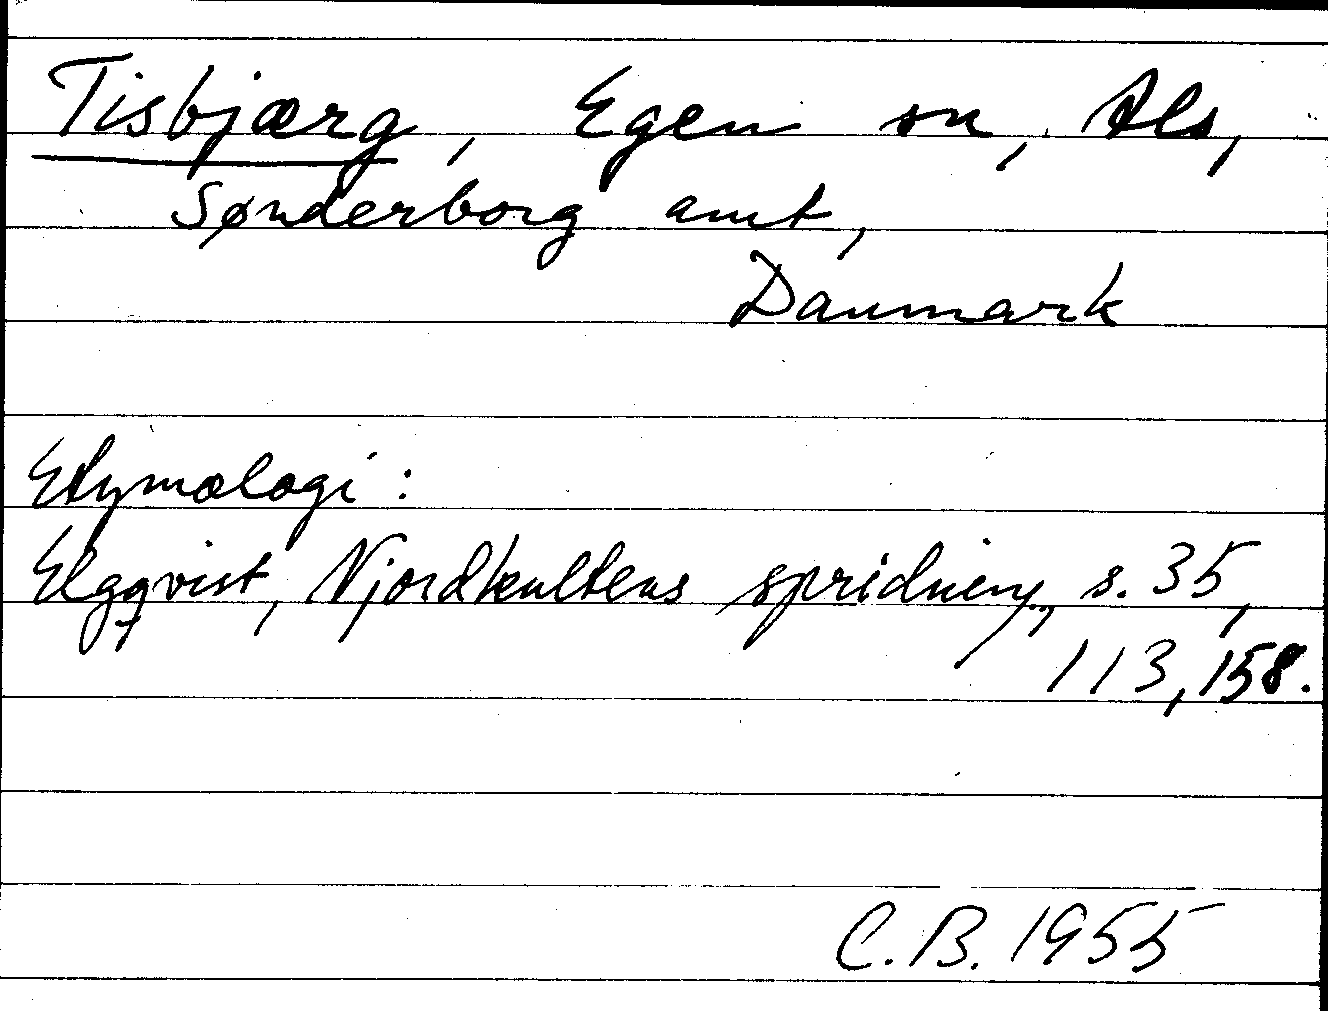 Tisbjærg, Egen sn, Als,
Sønderborg amt,
Danmark
Etymologi:
Elgqvist, Njordkultens spridning, s. 35,
113, 158.
C.B. 1955